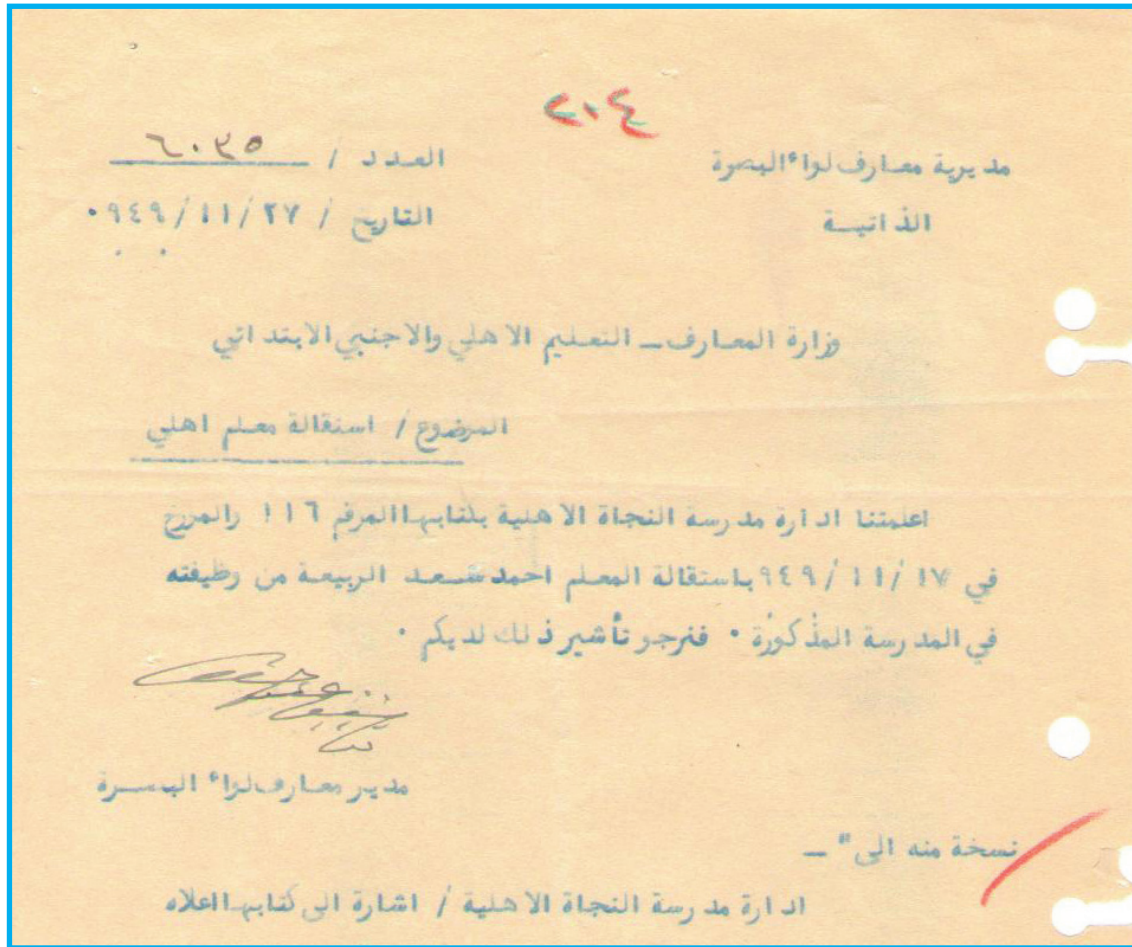 ٢٠٤
مديرية معارف لواء البصرة
العدد / ٦٠٣٥
الذاتية
التاريخ / ٢٧/ ١١/ ٩٤٩٠
وزارة المعارف ــ التعليم الاهلي والاجنبي الابتدائي
الموضوع / استقالة معلم اهلي
اعلمتنا ادارة مدرسة النجاة الاهلية بكتابها المرقم ١١٦ والمؤرخ
في ١٧/ ١١/ ٩٤٩ باستقالة المعلم احمد سعد الربيعة من وظيفته
في المدرسة المذكورة ٠ فنرجو تأشير ذلك لديكم ٠
مدير معارف لواء البصرة
نسخة منه الى" ــ
ادارة مدرسة النجاة الاهلية / اشارة الى كتابها اعلاه